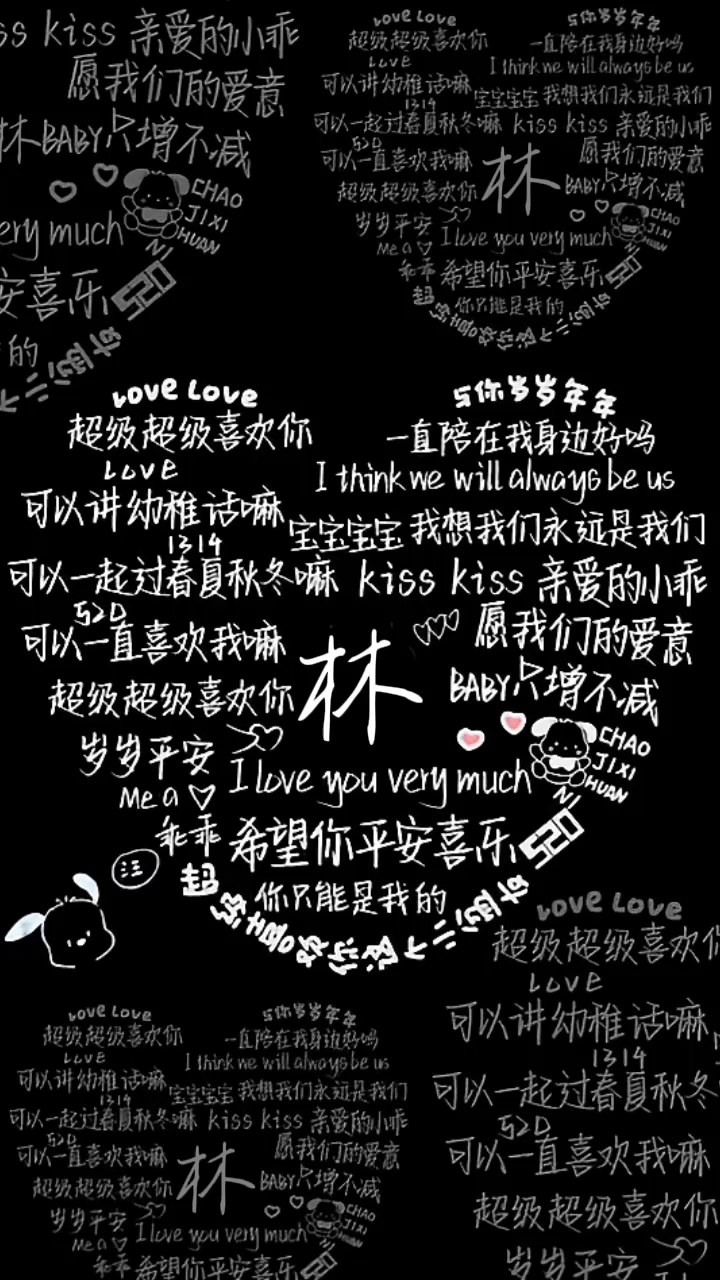 ss kiss 亲爱的小乖
愿我们的爱意
林 BABY只增不减
CHAO
JIXI
HUAN
NI
ery much
安喜乐 520
的
Love Love
与你岁岁年年
超级超级喜欢你
一直陪在我身边好吗
LOVE
I think we will always be us
可以讲幼稚话嘛
宝宝宝宝 我想我们永远是我们
1314
可以一起过春夏秋冬嘛 kiss kiss 亲爱的小乖
520
愿我们的爱意
可以一直喜欢我嘛
林
BABY只增不减
超级超级喜欢你
CHAO
JIXI
HUAN
NI
岁岁平安
I love you very much
Me a
乖乖 希望你平安喜乐 520
你只能是我的
Love Love
与你岁岁年年
超级超级喜欢你
一直陪在我身边好吗
LOVE
I think we will always be us
可以讲幼稚话嘛
宝宝宝宝 我想我们永远是我们
1314
可以一起过春夏秋冬嘛 kiss kiss 亲爱的小乖
520
愿我们的爱意
可以一直喜欢我嘛
林
BABY只增不减
超级超级喜欢你
CHAO
JIXI
HUAN
NI
岁岁平安
I love you very much
Me a
乖乖 希望你平安喜乐 520
汪
你只能是我的
Love Love
超级超级喜欢你
LOVE
可以讲幼稚话嘛
1314
可以一起过春夏秋冬
520
可以一直喜欢我嘛
超级超级喜欢你
岁岁平安
Love Love
与你岁岁年年
超级超级喜欢你
一直陪在我身边好吗
LOVE
I think we will always be us
可以讲幼稚话嘛
宝宝宝宝 我想我们永远是我们
1314
可以一起过春夏秋冬嘛 kiss kiss 亲爱的小乖
520
愿我们的爱意
可以一直喜欢我嘛
林
BABY只增不减
超级超级喜欢你
CHAO
JIXI
HUAN
岁岁平安
I love you very much
Me a
乖乖 希望你平安喜乐